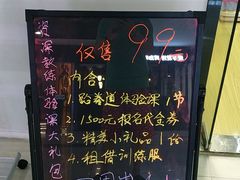 资深教练体验课大礼包
仅售 99元
内含:
1.跆拳道体验课1节
2.1500元报名代金券
3.精美小礼品1份
4.租借训练服